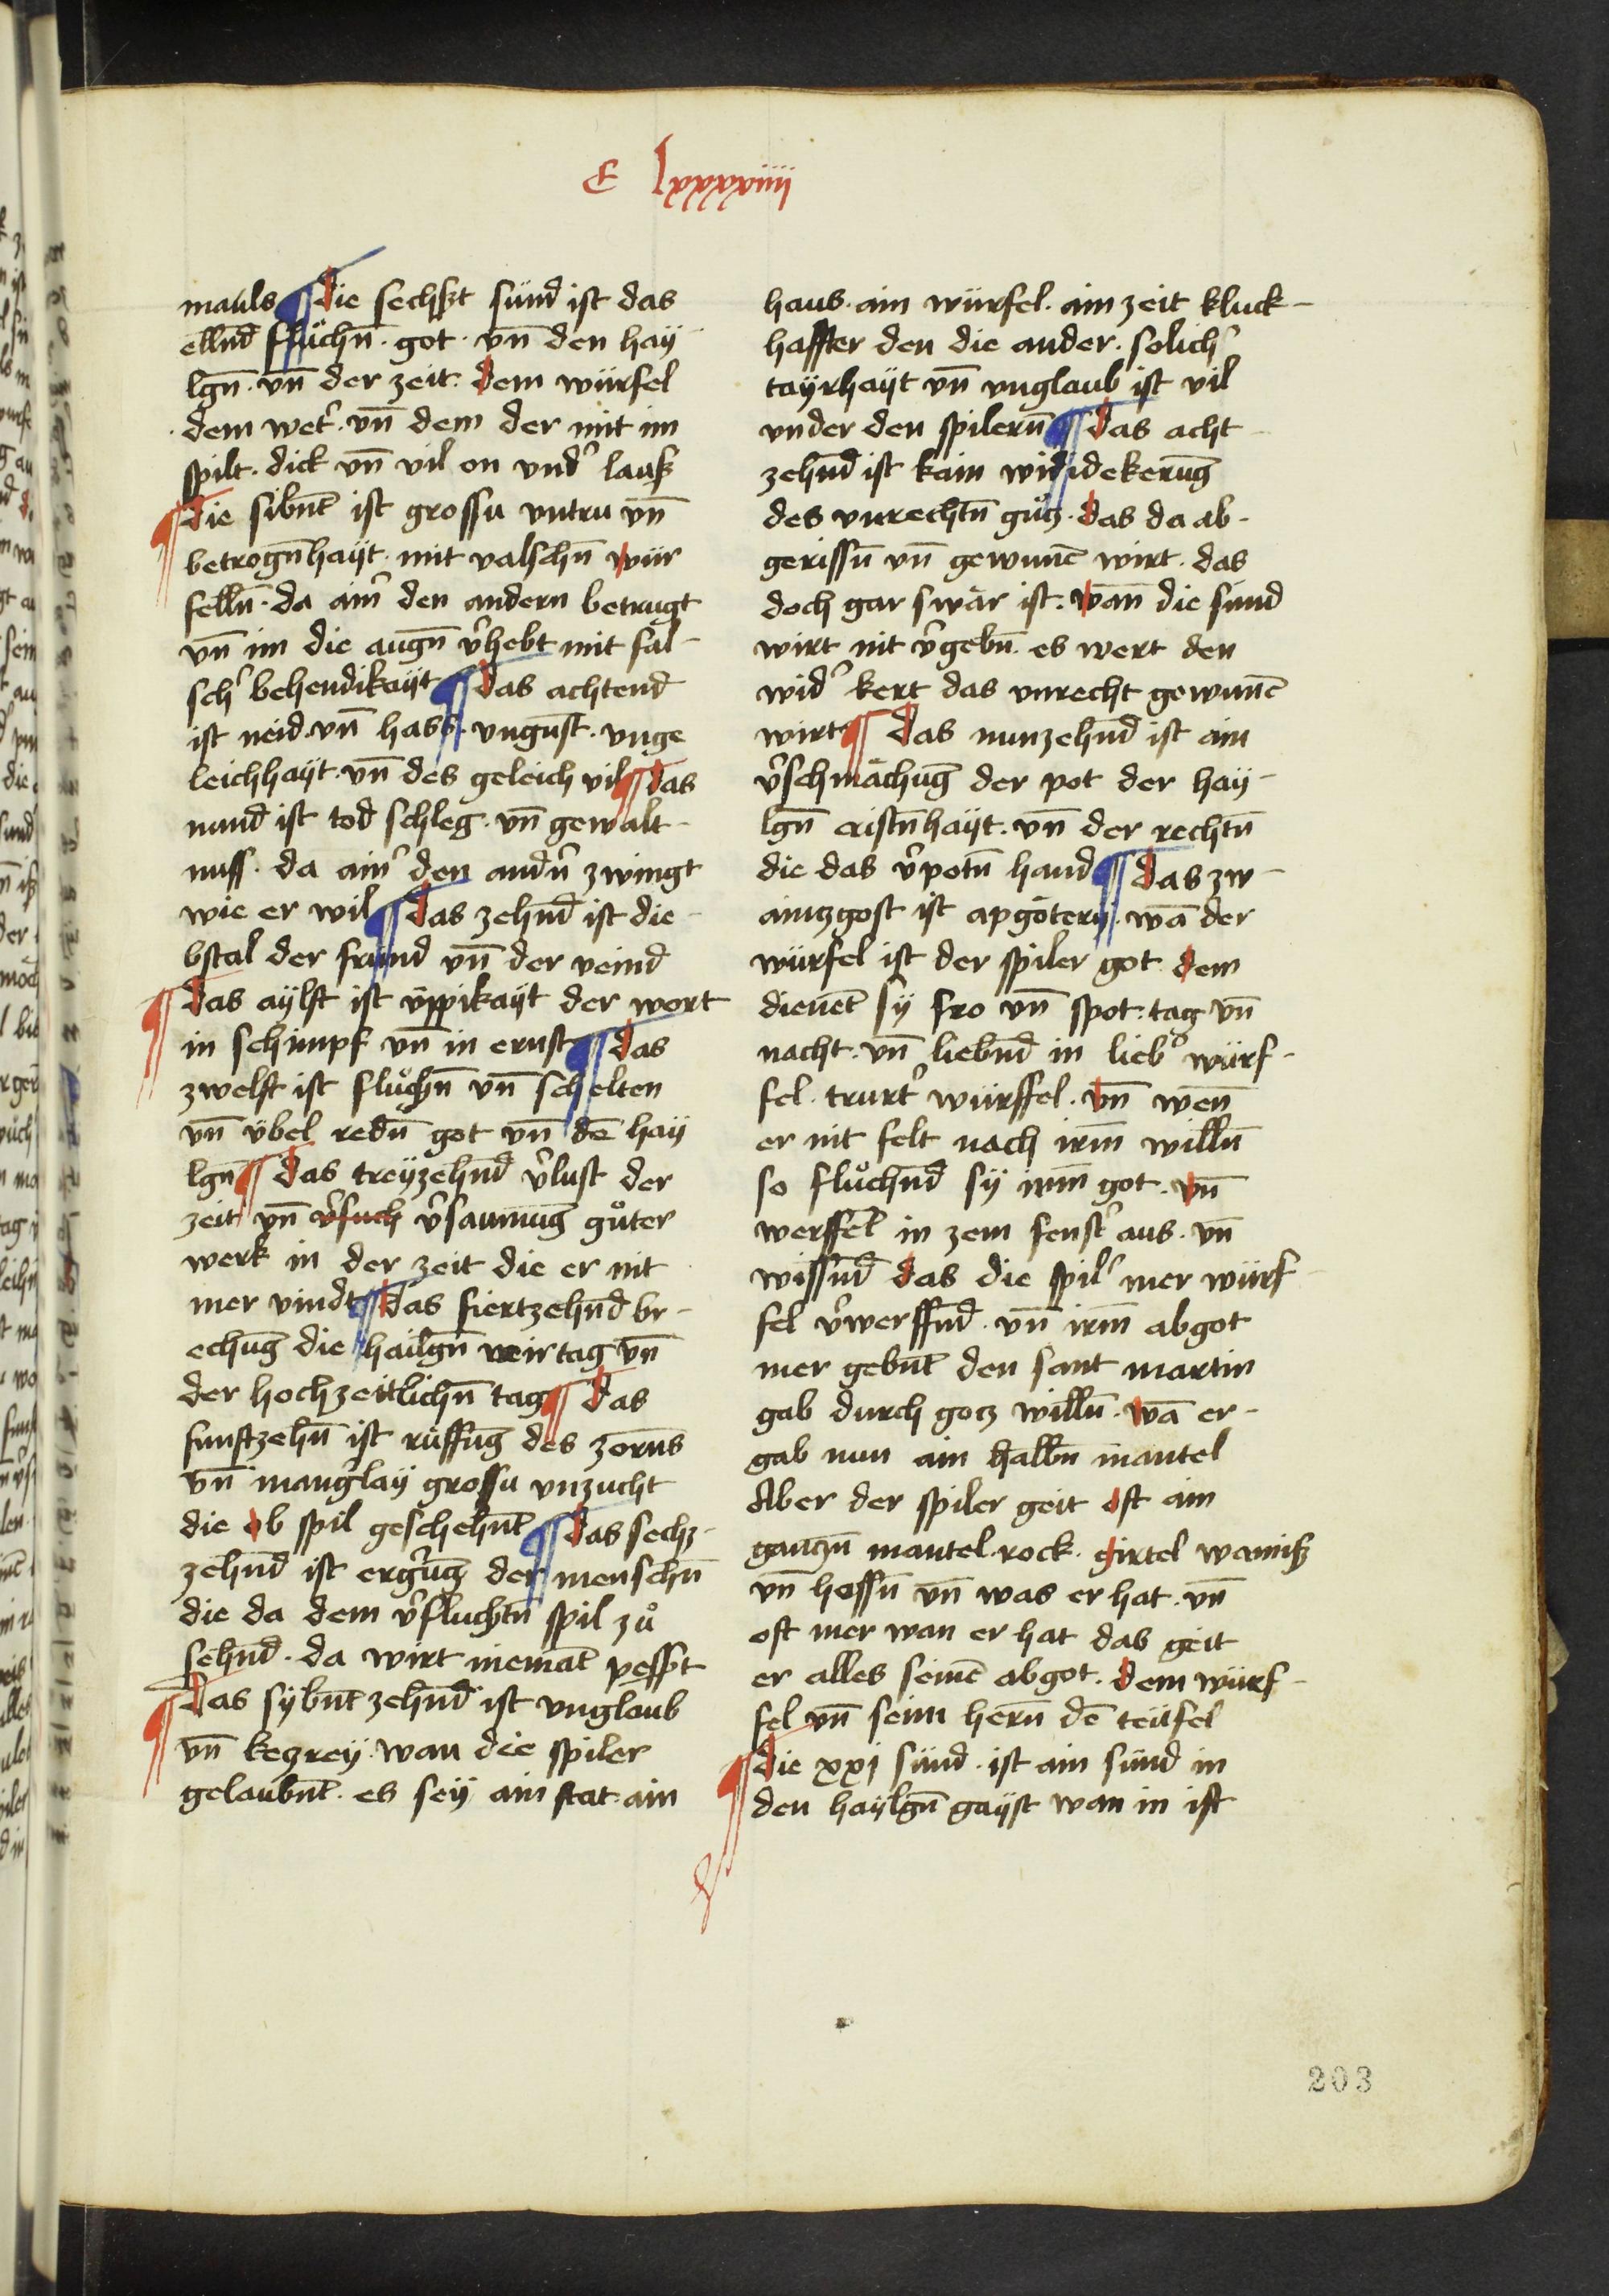 C lxxxxviiii
mauls ¶ die sechszt sünd ist das
ellnd̄ flůchn̄ · got · vn̄ den hay
lgn̄ · vn̄ der zeit · dem würfel
dem wet᷑ · vn̄ dem der mit im
spilt · dick vn̄ vil on vnd᷑ lausz
¶ die sibnt̄ ist grossu vntru vn̄
betrogn̄hayt · mit valschn̄ wür
felln̄ · da ain᷑ den andern betrugt
vn̄ im die augn̄ v᷑hebt mit fal-
sch᷑ behendikayt ¶ das achtend
ist neid · vn̄ hass · vngunst · vnge
leichhayt · vn̄ des geleich vil ¶ das
nund ist tod schleg · vn̄ gewalt-
nuss · da ain᷑ den andn᷑ zwingt
wie er wil ¶ das zehnd̄ ist die-
bstal der frund vn̄ der veind
¶ das aylft ist üppikayt der wort
in schimpf vn̄ in ernst ¶ das
zwelft ist flůchn̄ vn̄ schelten
vn̄ übel redn̄ got vn̄ dē hay
lgn̄ ¶ das treyzehnd̄ v᷑lust der
zeit vn̄ v᷑such v᷑saumūg gůter
werk in der zeit die er nit
mer vindt ¶ das fiertzehnd̄ br-
echūg die hailgn̄ veirtag vn̄
der hochzeitlichn̄ tag ¶ das
funftzehn̄ ist růffūg des zorns
vn̄ mang᷑lay grossu vnzucht
die ob spil geschehnt̄ ¶ das sechz-
zehnd̄ ist erg᷑ūg der menschn̄
die da dem v᷑fluchtn̄ spil zů
sehnd̄ · da wirt niemāt pesszt
¶ das sybnt̄zehnd̄ ist vnglaub
vn̄ kezrey · wan die spiler
gelaubnt̄ · es sey ain stat · ain
haus · ain würfel · ain zeit kluck-
haffter den die ander · solich᷑
tayrhayt vn̄ vnglaub ist vil
vnder den spilern̄ ¶ das acht-
zehnd̄ ist kain wididekerūg
des vnrechtn̄ gůz · das da ab-
gerissn̄ vn̄ gewunē wirt · das
doch gar swär ist · wan̄ die sund
wirt nit v᷑gebn̄ · es wert den
wid᷑ kert das vnrecht gewunē
wirt ¶ das nunzehnd̄ ist ain
v᷑schmächūg der pot der hay-
lgn̄ cristn̄hayt · vn̄ der rechtn̄
die das v᷑potn̄ hand ¶ das zw-
ainzgost ist apgötery · wā der
würfel ist der spiler got · dem
dienēt sy fro vn̄ spot · tag vn̄
nacht · vn̄ liebnd̄ in lieb᷑ würf-
fel · trurt᷑ würffel · vn̄ wen̄
er nit felt nach irm̄ willn̄
so flůchnd̄ sy irm̄ got · vn̄
werffēt in zem fenst᷑ aus · vn̄
wissnd̄ das die spil᷑ mer würf
fel v᷑werffnd̄ · vn̄ irm̄ abgot
mer gebnt̄ den sant martin
gab durch goz willn̄ · wā er-
gab nun ain halbn̄ mantel
Aber der spiler geit oft ain
ganzn̄ mantel · rock · girtel wamisz
vn̄ hossn̄ vn̄ was er hat · vn̄
oft mer wan er hat das geit
er alles seinē abgot · dem würf-
fel vn̄ seim hern̄ dē teüfel
¶ die xxj sünd · ist ain sünd in
den haylgn̄ gayst wan in ist
203